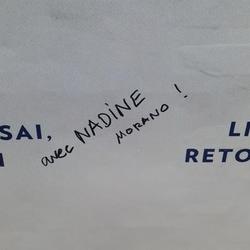 SAI,
avec NADINE
MORANO !
LI
RETO